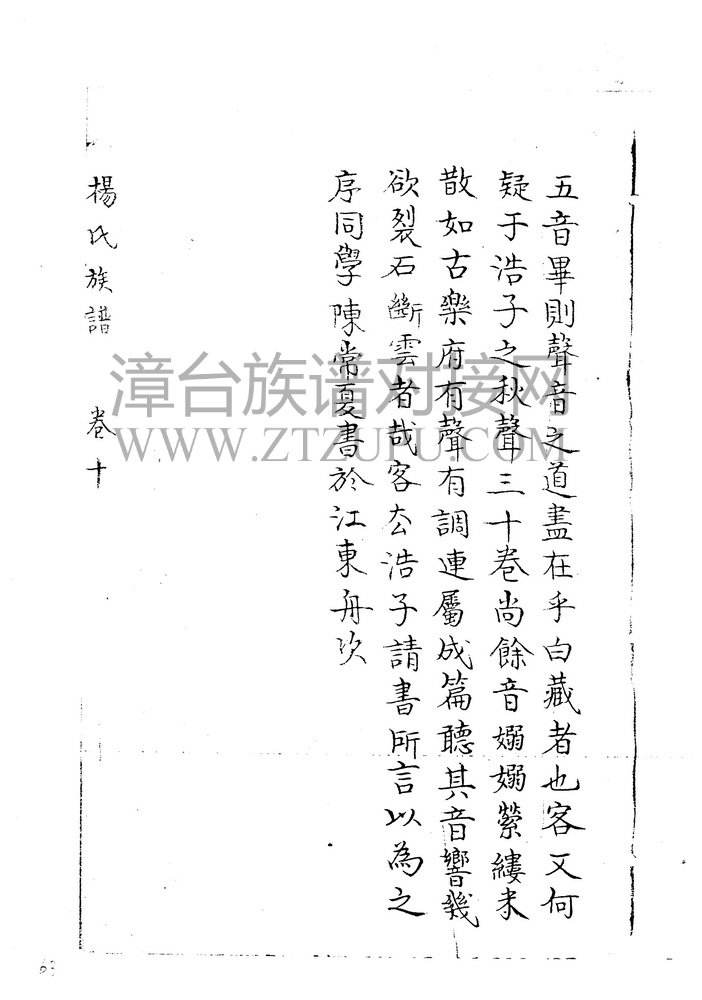 五音畢則聲音之道盡在乎白藏者也客又何
疑于浩子之秋聲三十卷尚餘音嫋嫋縈縷未
散如古樂府有聲有調連屬成篇聽其音響幾
欲裂石斷雲者哉客去浩子請書所言以為之
序同學陳常夏書於江東舟次
楊氏族譜 卷十
漳台族谱对接网
WWW.ZTZUPU.COM